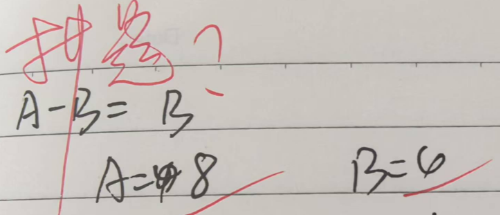 抄题?
A-B=B
A=8 B=6